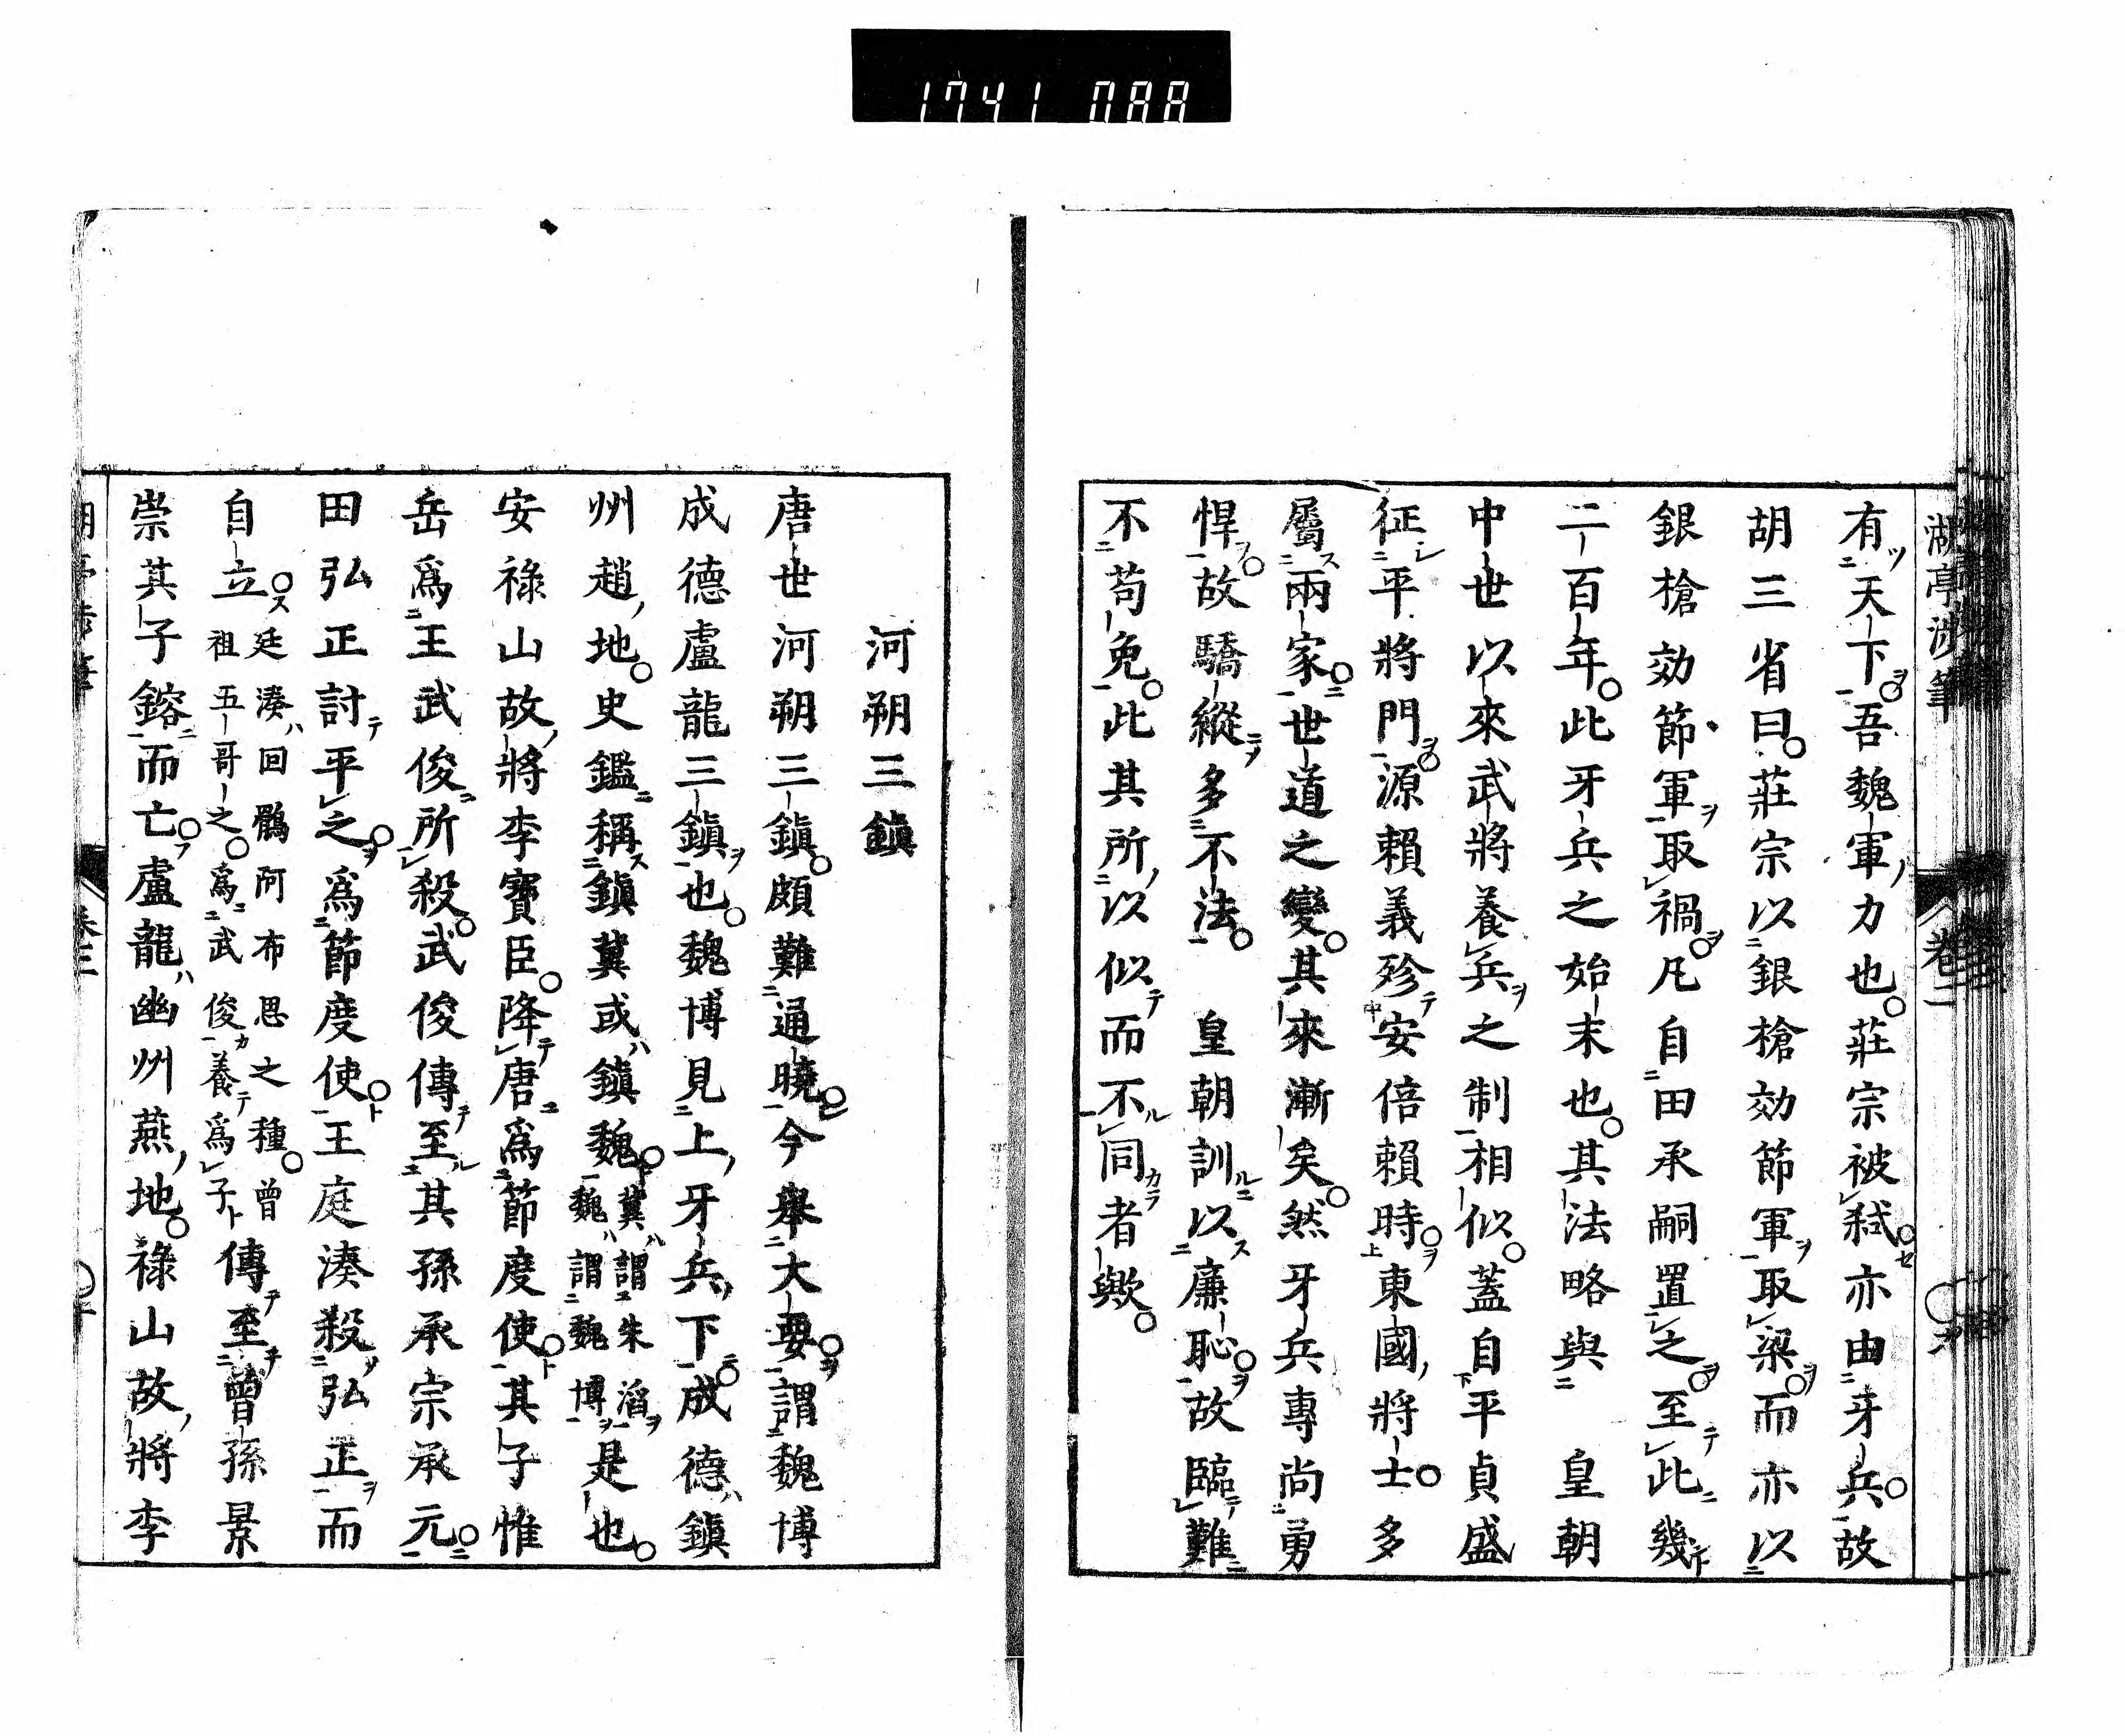 1741 088
湖亭涉筆 卷二
有天下吾魏軍力也莊宗被弑亦由牙兵故
胡三省曰莊宗以銀槍効節軍取梁而亦以
銀槍効節軍取禍凡自田承嗣置之至此幾
二百年此牙兵之始末也其法略與 皇朝
中世以來武將養兵之制相似蓋自平貞盛
征平將門源賴義殄安倍賴時東國將士多
屬兩家世道之變其來漸矣然牙兵專尚勇
悍故驕縱多不法 皇朝訓以廉恥故臨難
不苟免此其所以似而不同者歟
河朔三鎮
唐世河朔三鎮頗難通曉今舉大要謂魏博
成德盧龍三鎮也魏博見上牙兵下成德鎮
州趙地史鑑稱鎮冀或鎮魏冀謂朱滔魏謂魏博是也
安祿山故將李寶臣降唐爲節度使其子惟
岳爲王武俊所殺武俊傳至其孫承宗承元
田弘正討平之爲節度使王庭湊殺弘正而
自立廷湊回鶻阿布思之種曾祖五哥之爲武俊養爲子傳至曾孫景
崇其子鎔而亡盧龍幽州燕地祿山故將李